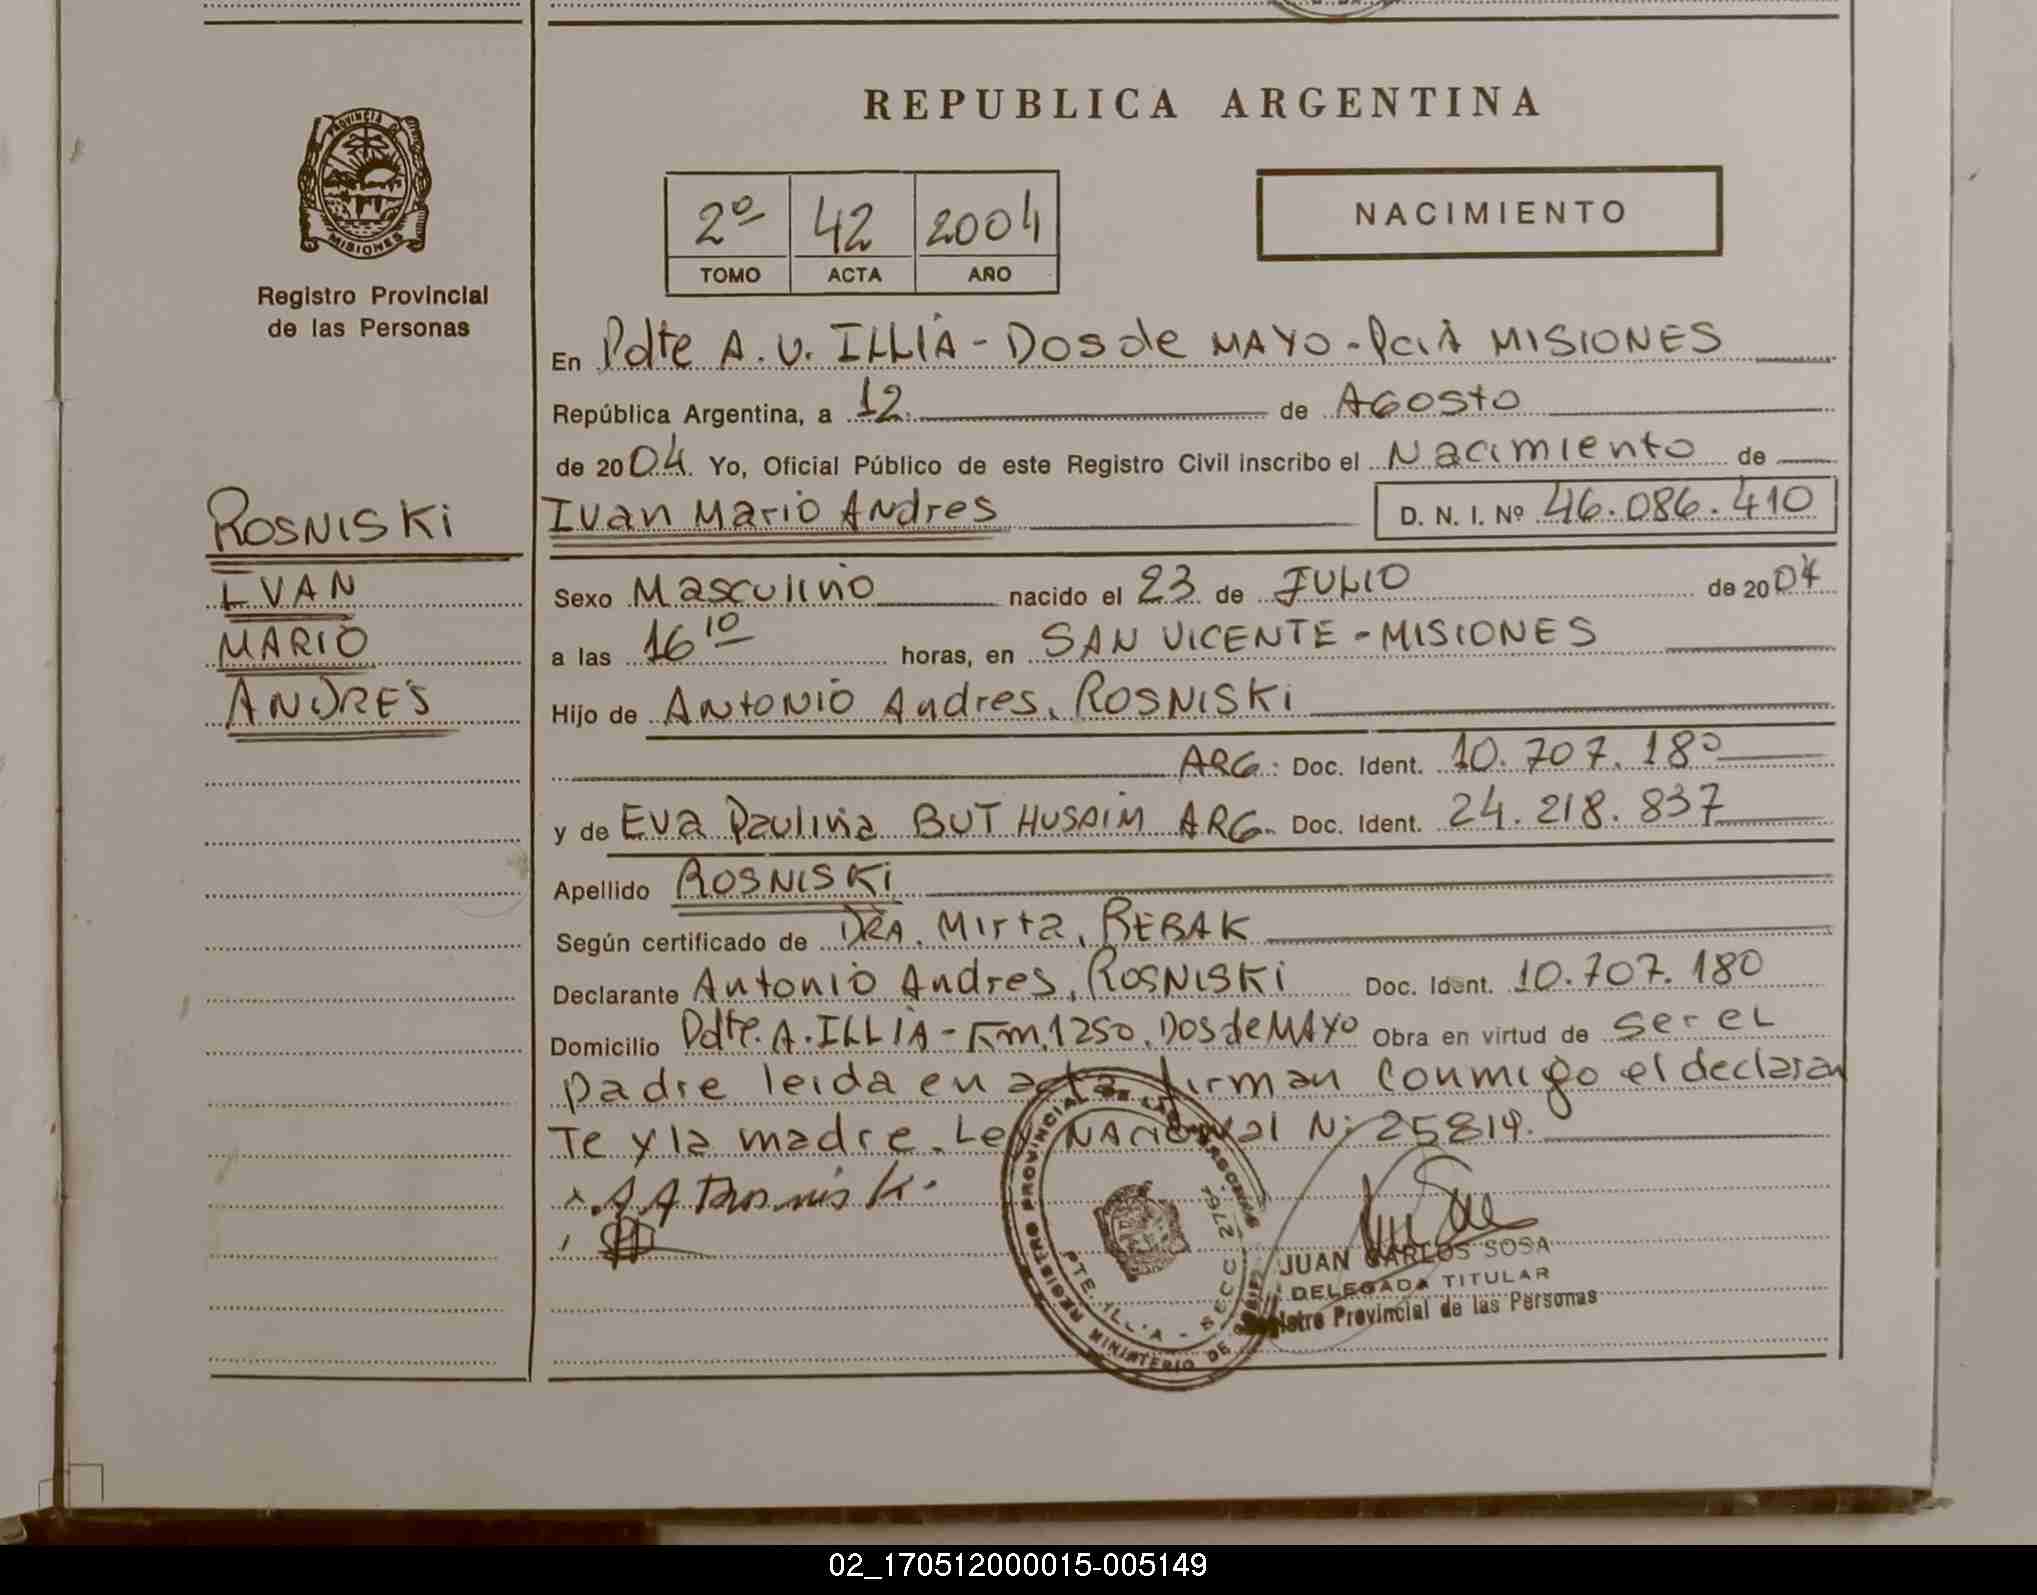 REPUBLICA ARGENTINA
PROVINCIA DE
MISIONES
Registro Provincial
de las Personas
2º 42 2004
TOMO ACTA AÑO
NACIMIENTO
En Pdte A. U. ILLIA - Dos de MAYO - Pcia MISIONES
República Argentina, a 12 de AGOSTO
de 2004. Yo, Oficial Público de este Registro Civil inscribo el Nacimiento de
ROSNISKI
IVAN
MARIO
ANDRES
Ivan Mario Andres D. N. I. Nº 46.086.410
Sexo Masculino nacido el 23 de JULIO de 2004
a las 16 10 horas, en SAN VICENTE - MISIONES
Hijo de ANTONIO Andres, ROSNISKI
ARG. Doc. Ident. 10.707.180
y de EVA Paulina BUT HUSAIM ARG. Doc. Ident. 24.218.837
Apellido ROSNISKI
Según certificado de DRA. Mirta, REBAK
Declarante Antonio Andres, ROSNISKI Doc. Ident. 10.707.180
Domicilio Pdte. A. ILLIA - Km. 1250. Dos de MAYO Obra en virtud de ser el
padre leida en acta firman conmigo el declaran
te y la madre. Ley NACIONAL N: 25819.
REGISTRO PROVINCIAL DE LAS PERSONAS
MINISTERIO DE
PTE. ILLIA - SECC. 2764
JUAN CARLOS SOSA
DELEGADA TITULAR
Registro Provincial de las Personas
02_170512000015-005149